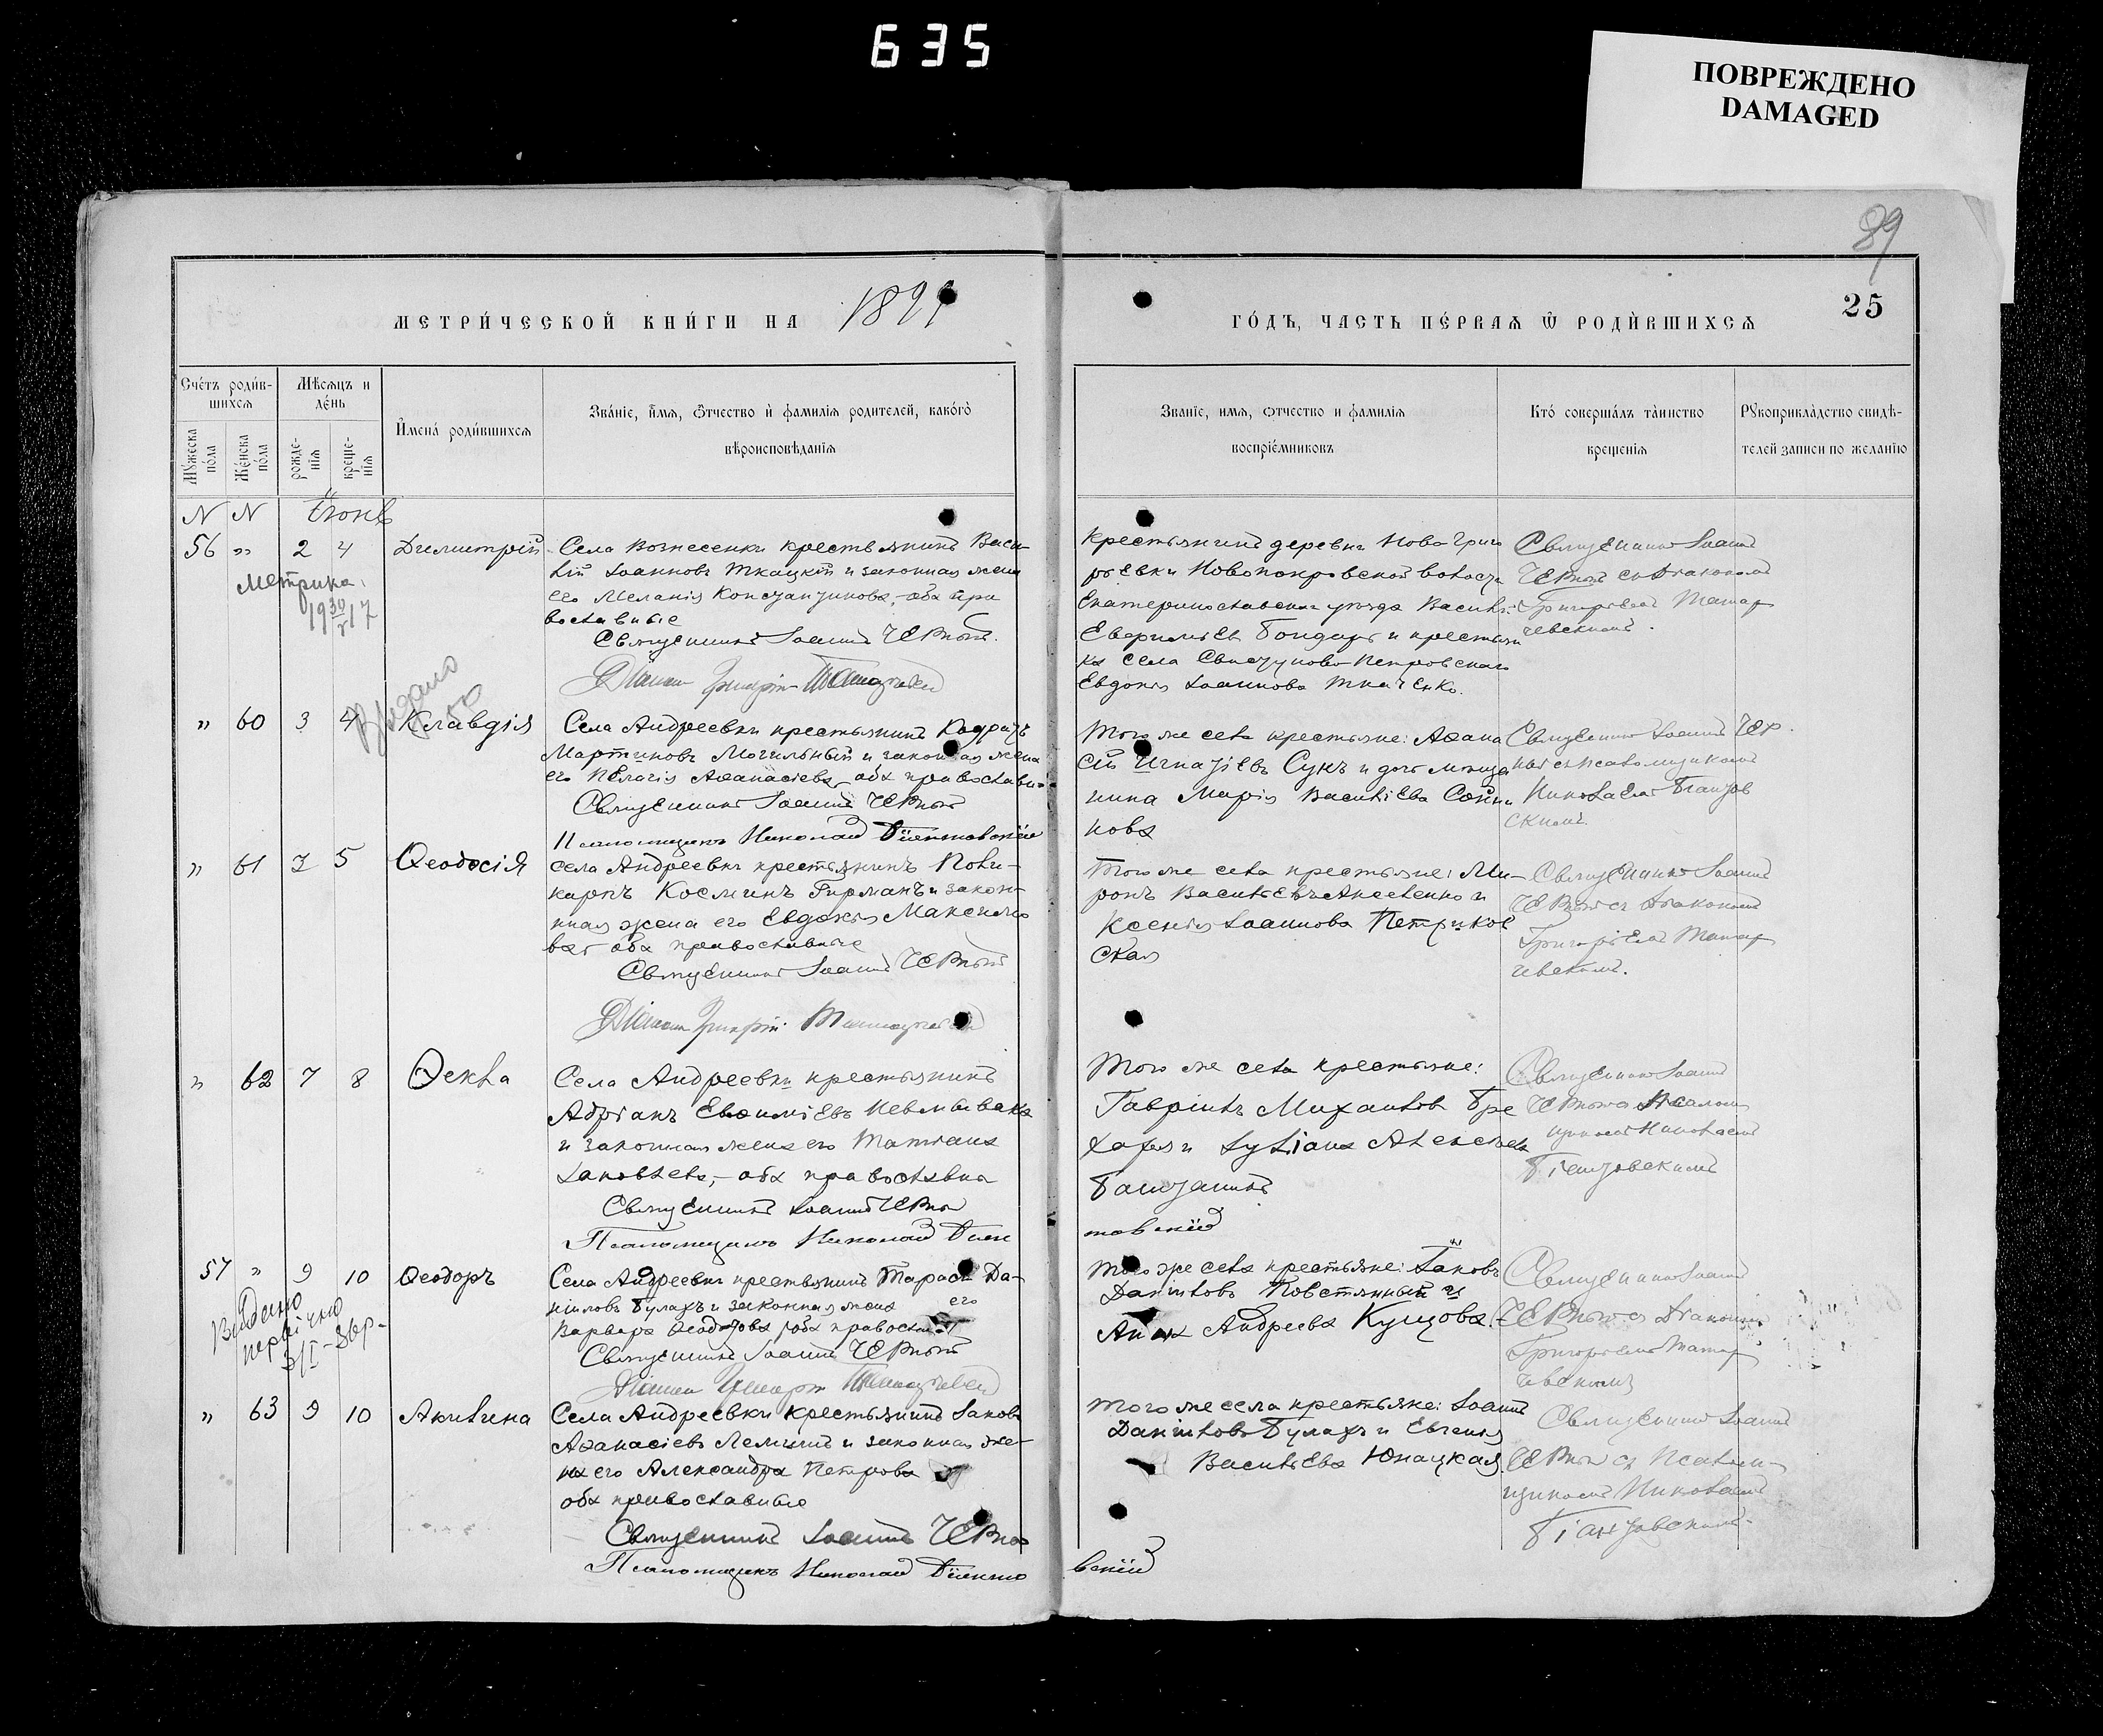 635
ПОВРЕЖДЕНО
DAMAGED
89
МЕТРИ́ЧЕСКОЙ КНИ́ГИ НА 189
ГО́ДЪ, ЧАСТЬ ПЕ́РВАѦ Ѡ РОДИ́ВШИХСѦ
25
Сче́тъ роди́в-
шихсѧ
Мѣсѧцъ и
де́нь
И҆мена́ роди́вшихсѧ
Зва́нїе, и҆́мѧ, ѻ҆́тчество и҆ фамилїѧ родителей, како́гѡ
вѣроисповѣданїѧ
Званїе, имѧ, ѻтчество и фамилїѧ
воспрїе́мниковъ
Кто́ соверша́лъ та̀инство
крещенїѧ
Рꙋкоприкла̀дство свидѣ-
телей записи по желанїю
Мꙋжеска
по́ла
Же́нска
по́ла
рожде-
нїѧ
креще-
нїѧ
N N Іюнь
56 " 2 4 Димитрій
Села Вознесенки крестьянинъ Васи-
лій Іоанновъ Ткацкій и законная жена
его Меланія Константинова, оба пра
вославные
Священникъ Іоаннъ Черный
Діаконъ Григорій
Крестьянинъ деревни Ново Григо
рьевки Новопокровской волости
Екатеринославскаго уѣзда Василій
Евфиміевъ Бондарь и крестьян
ка села Свистуново Петровскаго
Евдокія Іоаннова Ткаченко.
Священникъ Іоаннъ
Черный съ Діакономъ
Григоріемъ
чевскимъ.
Метрика
19 30/V 17
Видано
" 60 3 4 Клавдія
Села Андреевки крестьянинъ Кодратъ
Мартиновъ Могильный и законная жена
его Пелагія Аѳанасіева, оба православн
Священникъ Іоаннъ Черный
Псаломщикъ Николай
Того же села крестьяне: Аѳана
сій Игнатіевъ Сукъ и дочь мѣща
нина Марія Василіева
нова
Священникъ Іоаннъ Чер
ный съ Псаломщикомъ
Николаемъ
скимъ.
" 61 3 5 Ѳеодосія
Села Андреевки крестьянинъ Поли-
карпъ Косминъ Гирманъ и закон-
ная жена его Евдокія Максимо
ва, оба православные
Священникъ Іоаннъ Черный
Діаконъ Григорій
Того же села крестьяне: Ми-
ронъ Василіевъ Алексеенко и
Ксенія Іоаннова Петриков
ская
Священникъ Іоаннъ
Черный съ Діакономъ
Григоріемъ
чевскимъ.
" 62 7 8 Ѳекла
Села Андреевки крестьянинъ
Адріанъ Евѳиміевъ Невмывака
и законная жена его Татіана
Іаковлева, - оба православны
Священникъ Іоаннъ Черны
Псаломщикъ Николай
товскій
Того же села крестьяне:
Гавріилъ Михаиловъ
и Іуліана Алексѣева
Священникъ Іоаннъ
Черный съ Псалом
щикомъ Николаемъ
57 " 9 10 Ѳеодоръ
Села Андреевки крестьянинъ Тарасій Да-
ніиловъ Булахъ и законная жена его
Варвара Ѳеодотова, оба православн
Священникъ Іоаннъ Черный
Діаконъ Григорій
Того же села крестьяне: Іаковъ
Даніиловъ Повстянный и
Анна Андреева Куцова.
Священникъ Іоаннъ
Черный съ Діакономъ
Григоріемъ
чевскимъ
Видано
" 63 9 10 Акилина
Села Андреевки крестьянинъ Іаковъ
Аѳанасіевъ и законная же-
на его Александра Петрова
оба православные
Священникъ Іоаннъ Черны
Псаломщикъ Николай
вскій
Того же села крестьяне: Іоаннъ
Даніиловъ Булахъ и Евгенія
Василіева Юнацкая.
Священникъ Іоаннъ
Черный съ Псалом-
щикомъ Николаемъ